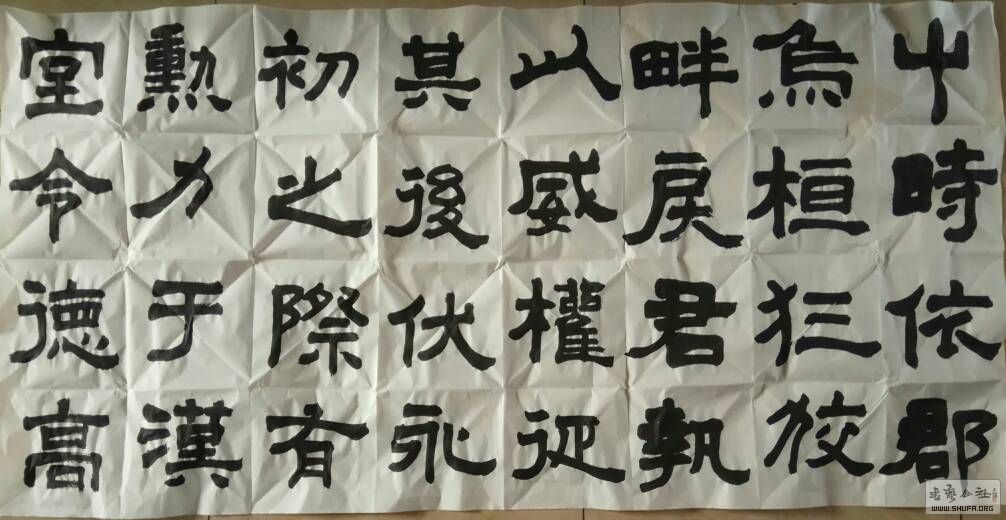 時依郡
烏桓狂狡
畔戾君執
以威權征
其後伏永
初之際有
勲力于漢
室令德高
书艺公社
WWW.SHUFA.ORG